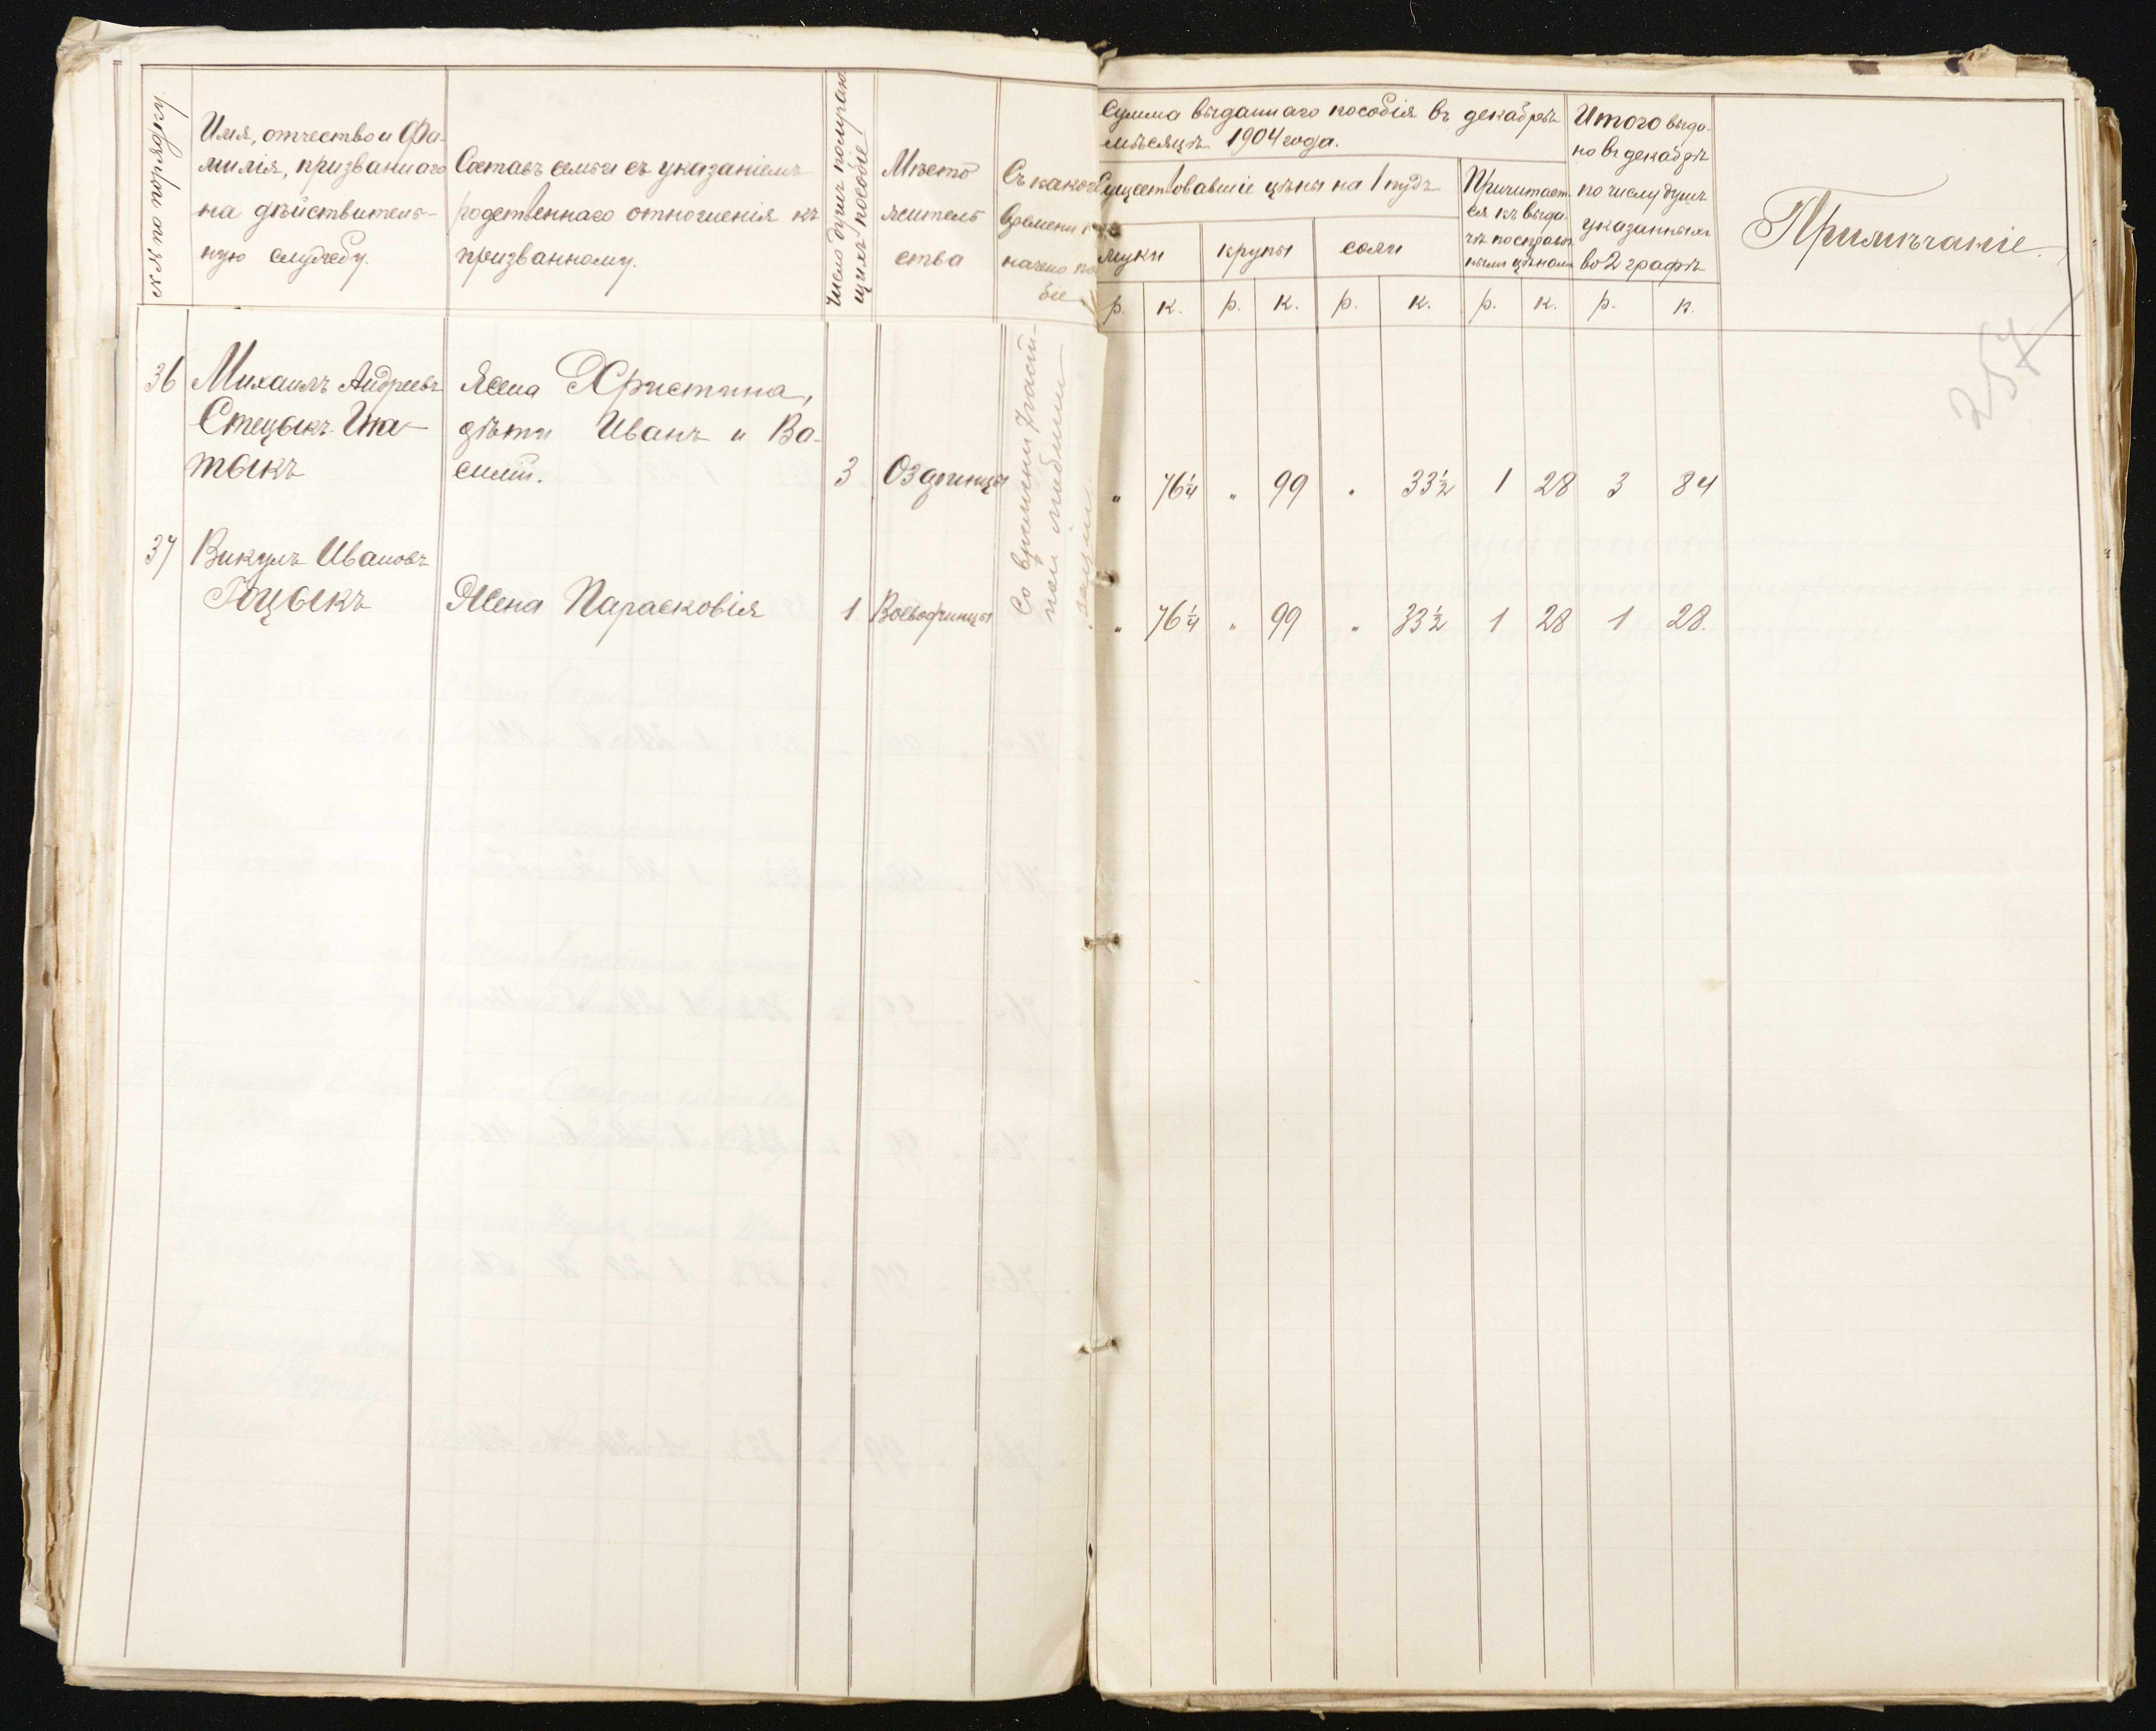 №№ по порядку.
Имя, отчество и Фа-
милія, призваннаго
на дѣйствитель-
ную службу.
Составъ семьи съ указаніемъ
родственнаго отношенія къ
призванному.
Число душъ получаю-
щихъ пособіе
Мѣсто
житель
ства
Съ какого
времени
начено по
біе
Сумма выданнаго пособія въ декабрѣ
мѣсяцѣ 1904 года.
Существовавшіе цѣны на 1 пудъ
муки
крупы
соли
р. к. р. к. р. к.
Причитает
ся къ выда
чѣ по справоч
нымъ цѣнамъ
р. к.
Итого выда-
но въ декабрѣ
по числу душъ
указанныхъ
во 2 графѣ
р. к.
Примѣчаніе.
257
36 Михаилъ Андреевъ
Стецыкъ Гна-
тыкъ
Жена Христина,
дѣти Иванъ и Ва-
силій.
3 Оздочинцы
" 76 1/4 " 99 " 33 1/2 1 28 3 84
37 Викулъ Ивановъ
Гоцыкъ
Жена Парасковія
1
" 76 1/4 " 99 " 33 1/2 1 28 1 28.
Со времени частн-
ной мобили
заціи.